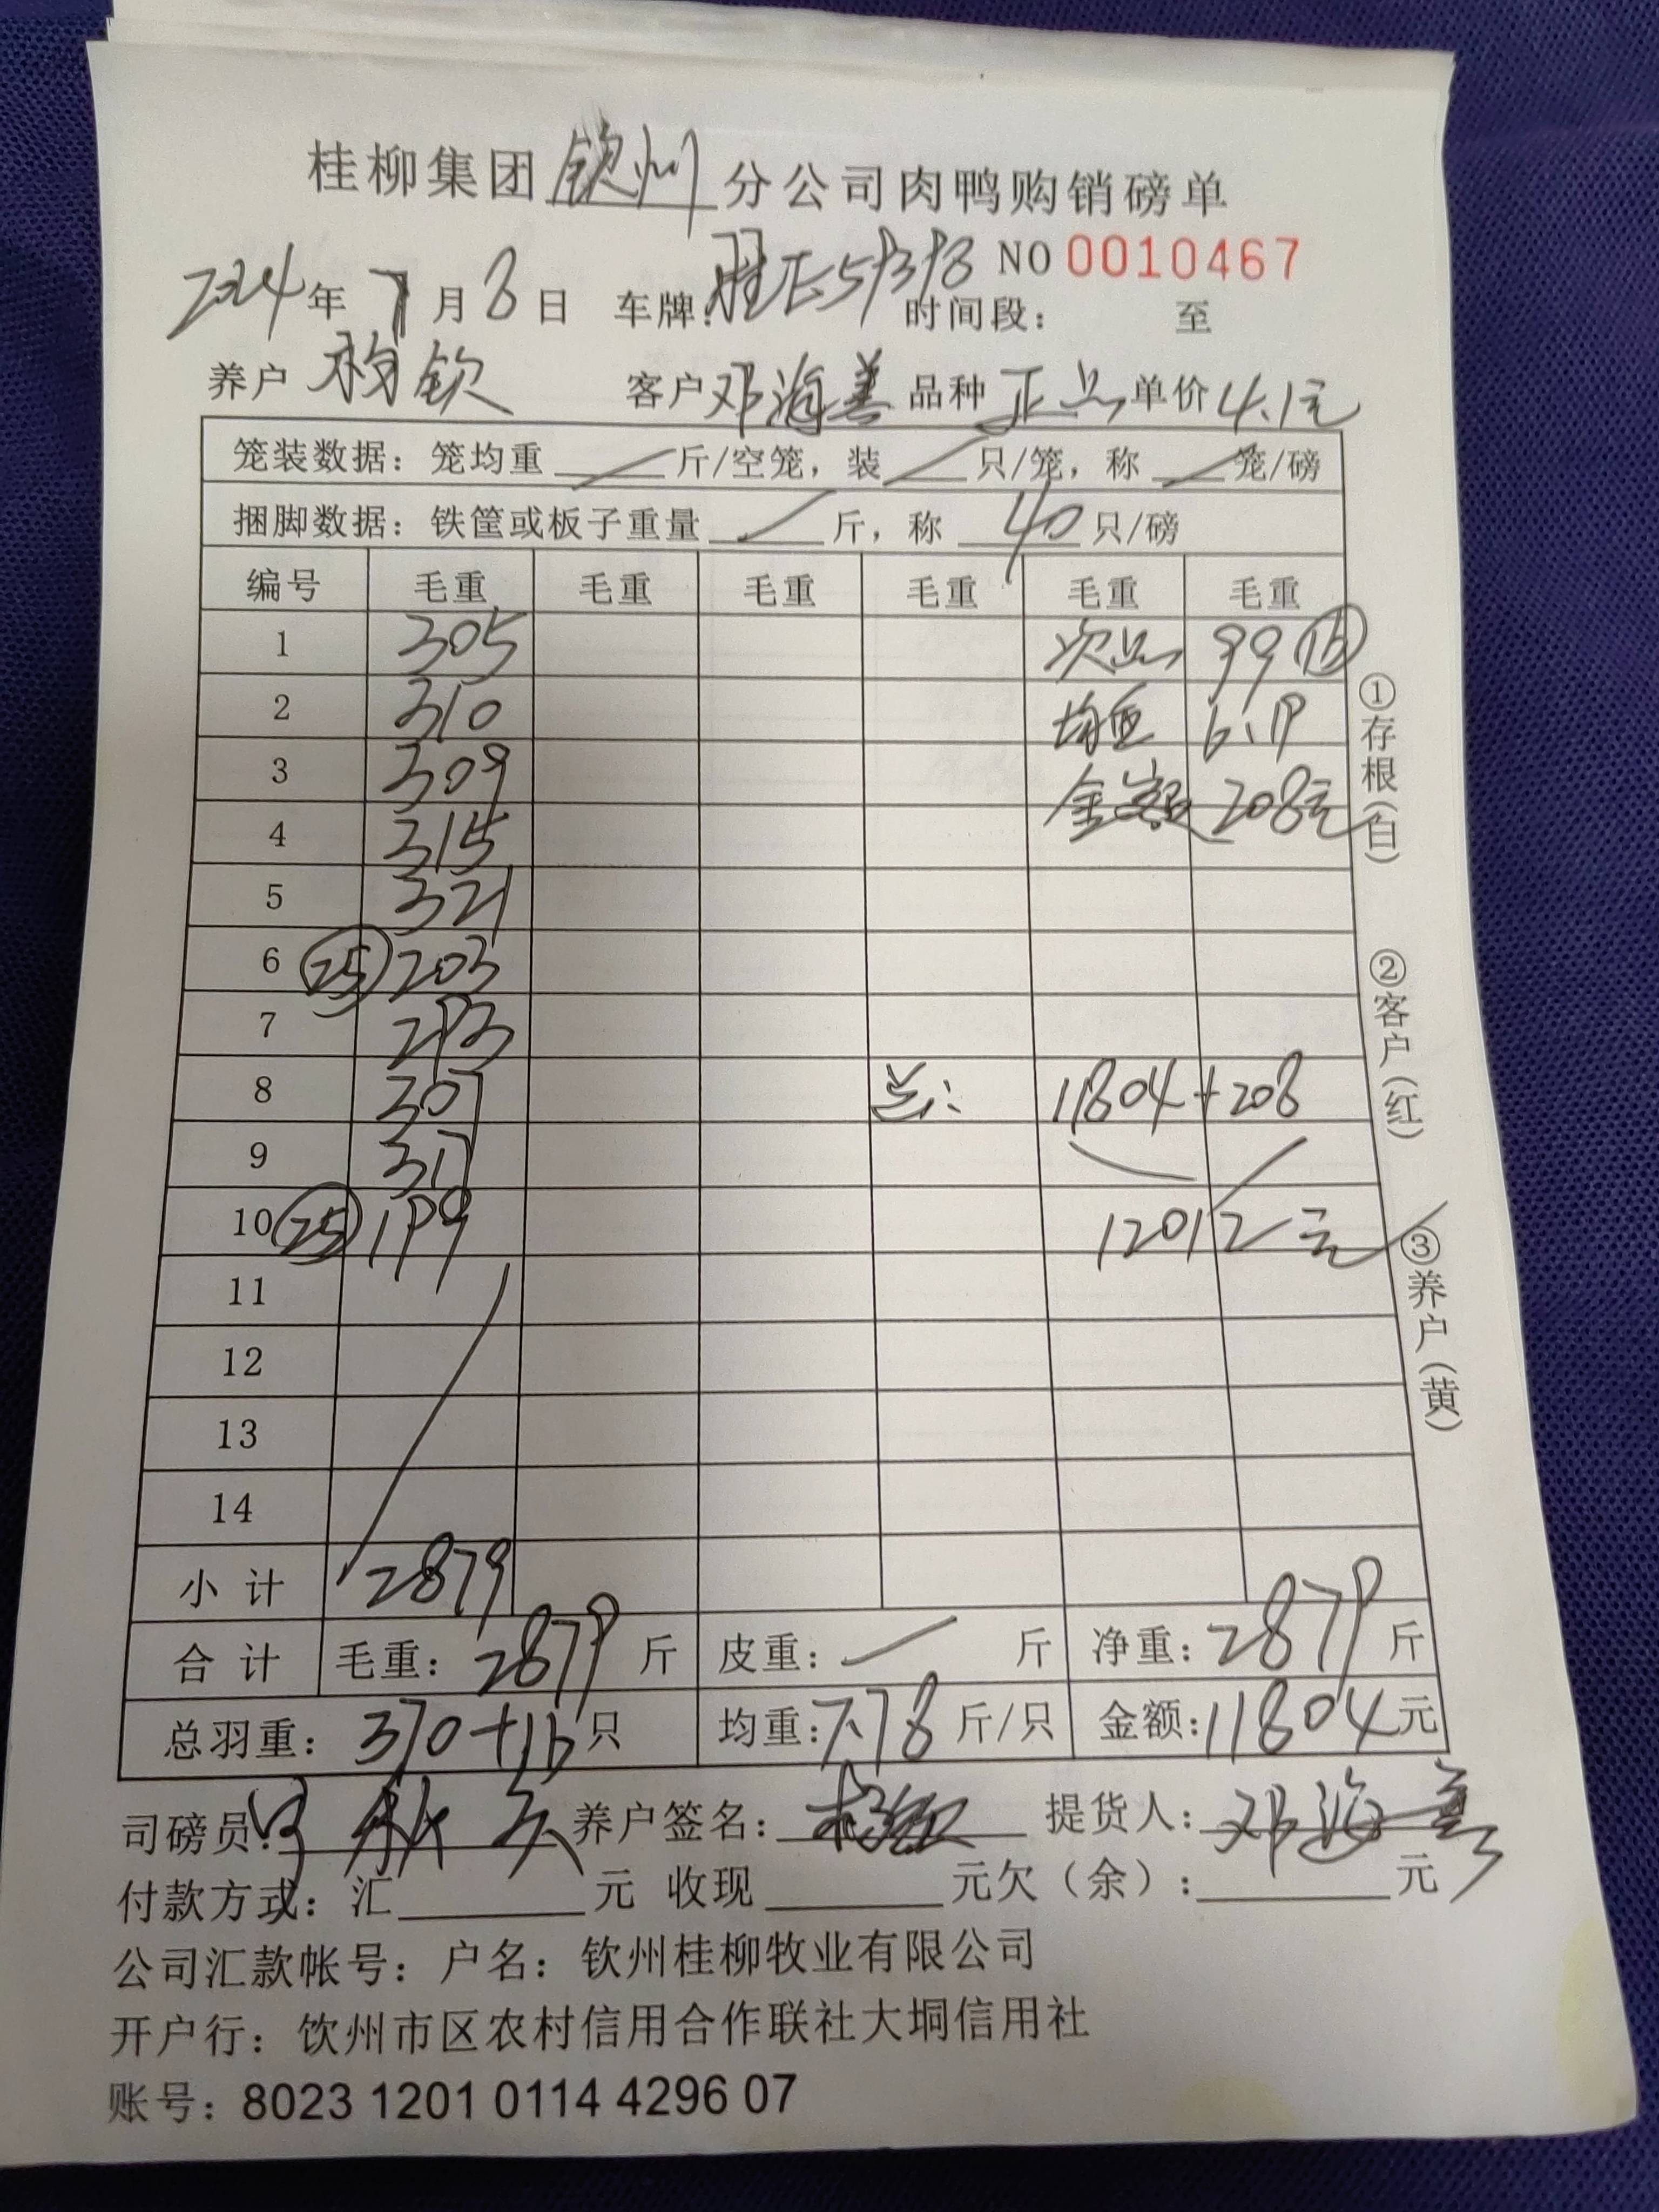 桂柳集团钦州分公司肉鸭购销磅单
NO 0010467
2024年7月8日 车牌: 时间段: 至
养户 钦 客户邓海善 品种正品 单价4.1元
笼装数据: 笼均重 斤/空笼, 装 只/笼, 称 笼/磅
捆脚数据: 铁筐或板子重量 斤, 称 40 只/磅
编号 毛重 毛重 毛重 毛重 毛重 毛重
1 305 次品 99 16
2 310 均重 6.19
3 309 金额 208元
4 315
5 321
6 25 203
7 293
8 307 总: 11804+208
9 317
10 25 199 12012元
11
12
13
14
小计 2879
合计 毛重: 2879 斤 皮重: 斤 净重: 2879 斤
总羽重: 370+16只 均重: 7.78 斤/只 金额: 11804元
司磅员: 养户签名: 提货人: 邓海善
付款方式: 汇 元 收现 元欠(余): 元
公司汇款帐号: 户名: 钦州桂柳牧业有限公司
开户行: 饮州市区农村信用合作联社大垌信用社
账号: 8023 1201 0114 4296 07
①存根(白)
②客户(红)
③养户(黄)